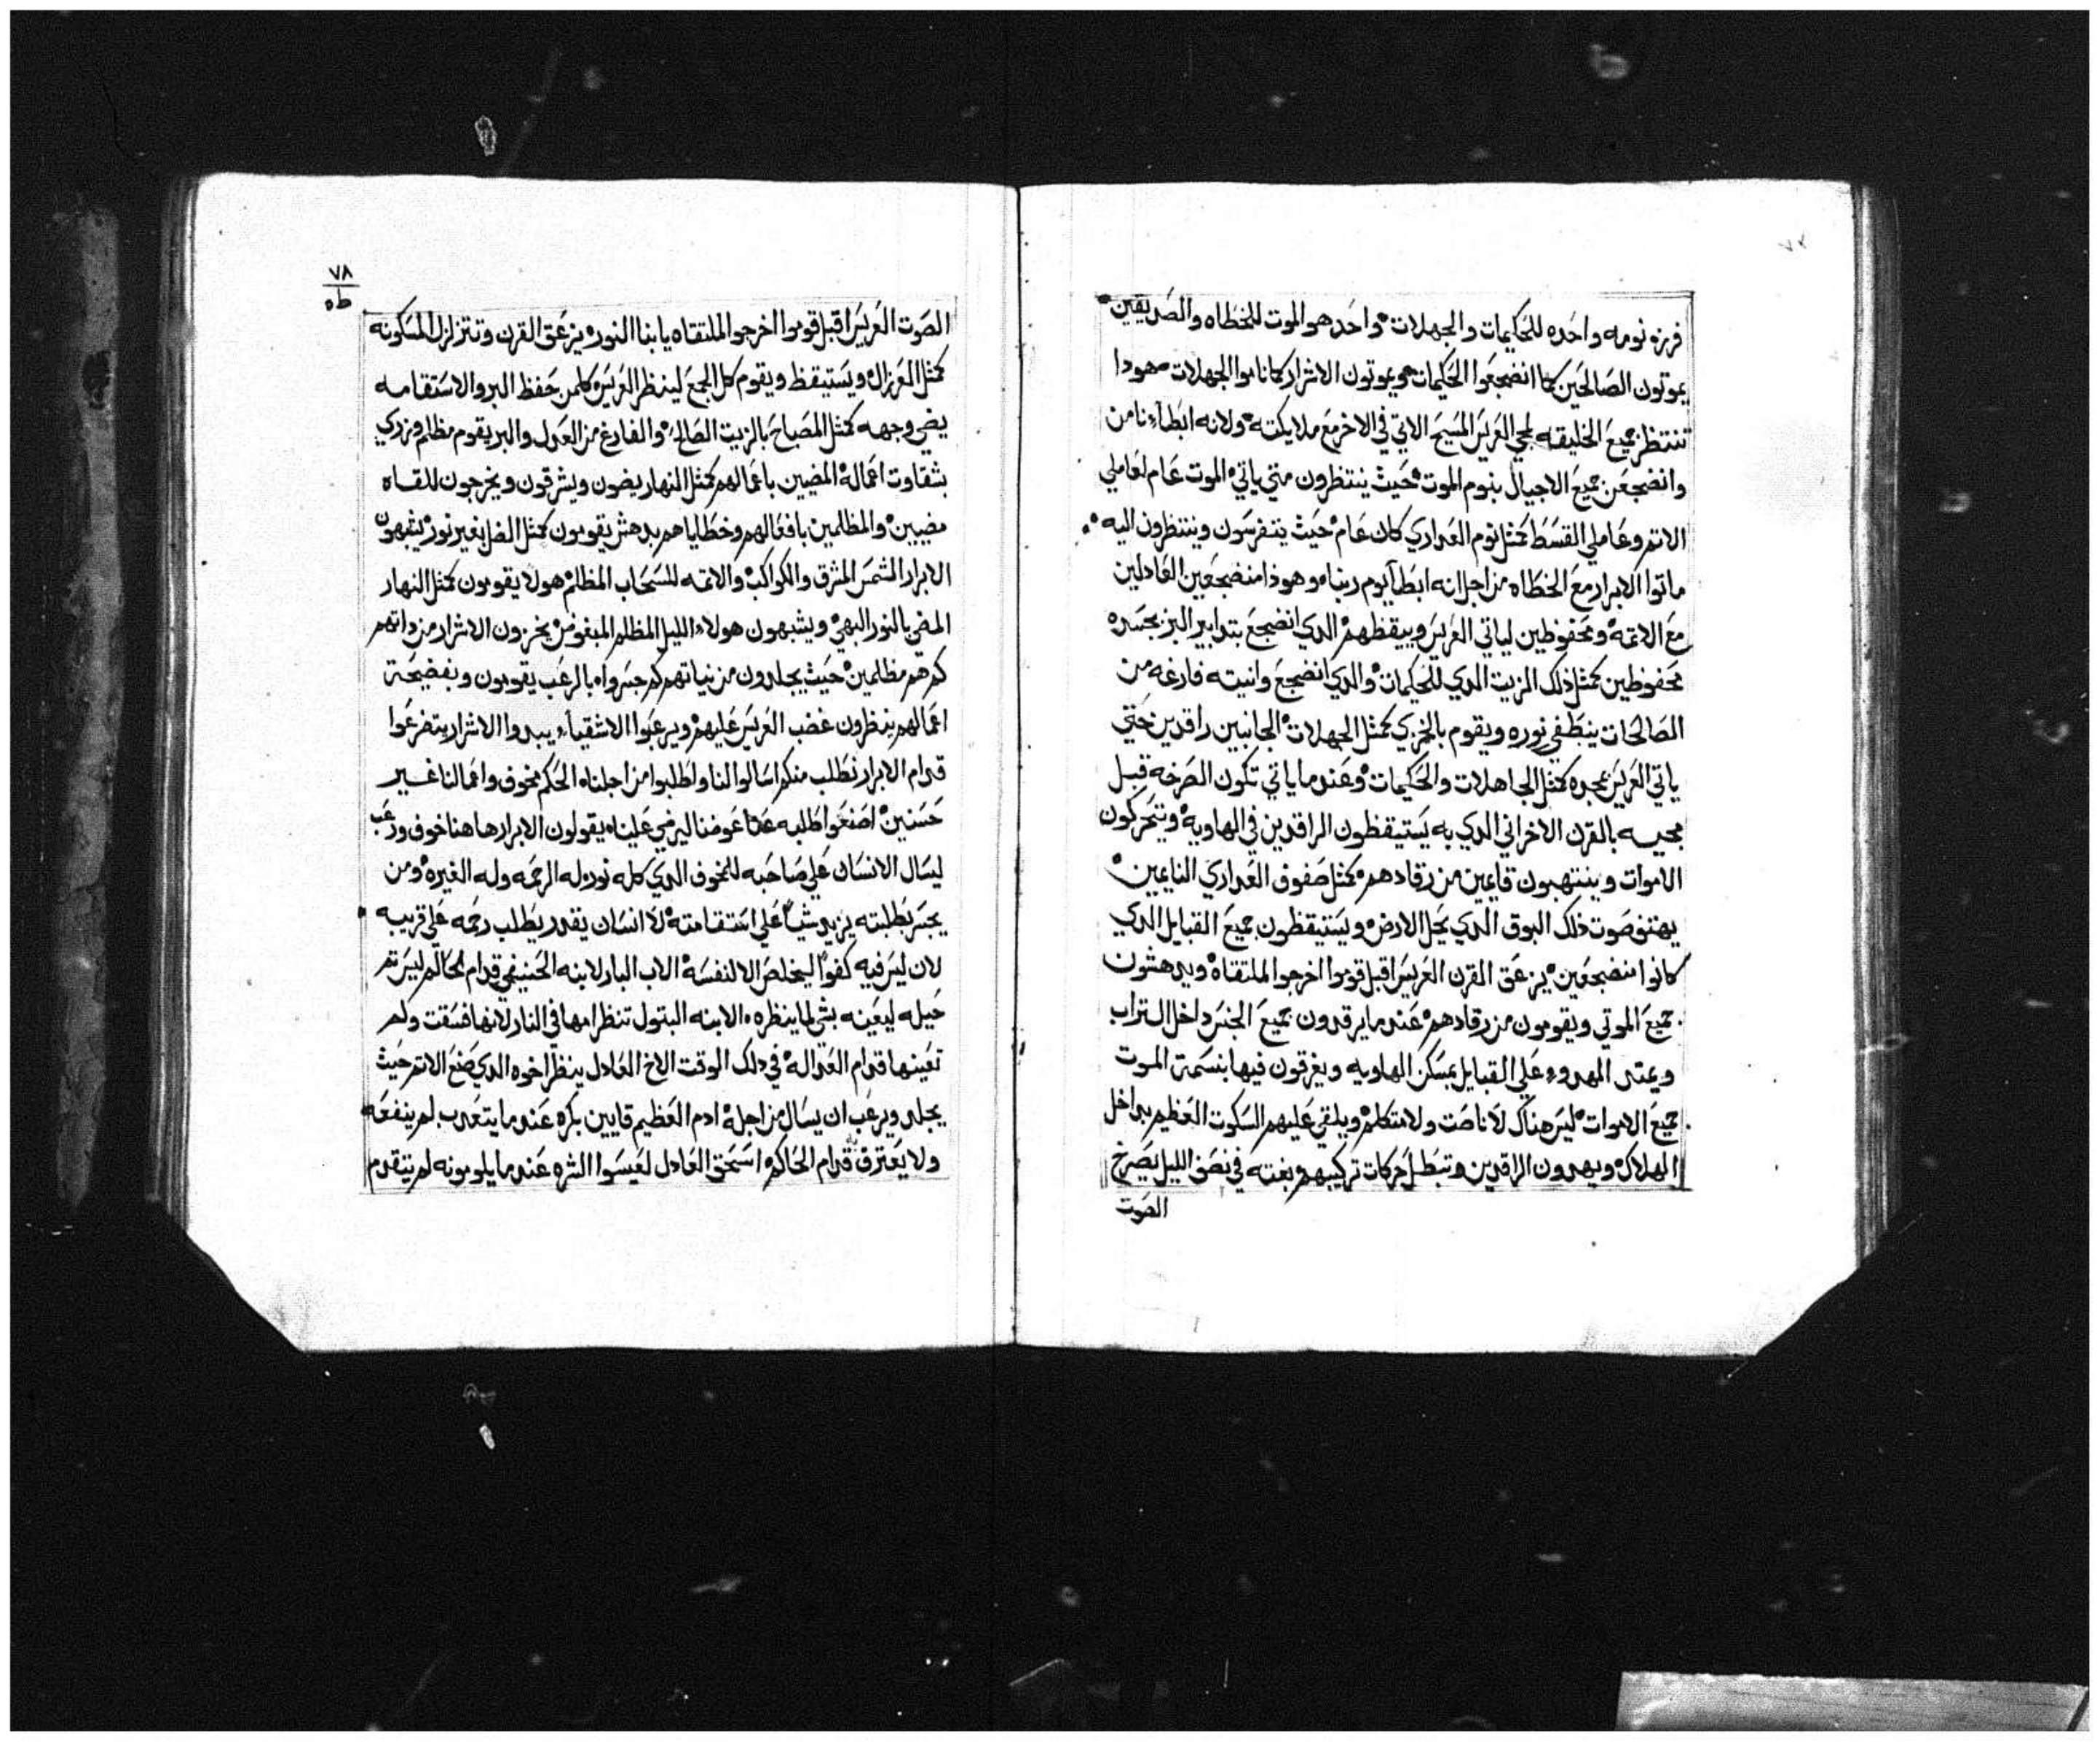 فرزه نومه واحده للحكيمات والجهلات واحد هو الموت للخطاه والصديقين
يموتون الصالحين كما انضجعوا الحكيمات ويموتون الاشرار كما ناموا الجهلات هودا
تنتظر جميع الخليقه لمجي العريس المسيح الاتي في الاخر مع ملايكته ولانه ابطاء نامن
وانضجعن جميع الاجيال بنوم الموت حيث ينتظرون متي ياتي الموت عام لعاملي
الاتم وعاملي القسط كمثل نوم العداري كان عام حيث يتفرسون وينتظرون اليه
ماتوا الابرار مع الخطاه من اجل انه ابطا يوم ربناه وهوذا منضجعين العادلين
مع الاتمه ومحفوظين لياتي العريس وييقظهم الدي انضجع بتدابير البر بجسده
محفوظين كمثل ذلك الزيت الدي للحكيمات والدي انضجع وانيته فارغه من
الصالحات ينطفي نوره ويقوم بالخزي كمثل الجهلات الجانبين راقدين حتي
ياتي العريس بمجده كمثل الجاهلات والحكيمات وعندما ياتي تكون الصرخه قبل
مجيه بالقرن الاخراني الدي به يستيقظون الراقدين في الهاويه ويتحركون
الاموات وينتهبون قايمين من رقادهم كمثل صفوف العداري النايمين
يهتف صوت ذلك البوق الدي يحل الارض ويستيقظون جميع القبايل الدي
كانوا منضجعين يزعق القرن العريس اقبل قوموا اخرجوا الملتقاه ويدهشون
جميع الموتي ويقومون من رقادهم عندما يرقدون جميع الجنس داخل التراب
ويمتد المهدوء علي القبايل بمسكن الهاويه ويغرقون فيها بنسمة الموت
جميع الاموات ليس هناك لا ناصت ولا متكلم ويلقي عليهم السكوت العظيم بداخل
الهلاك ويهدون الراقدين وتبطل حركات تركيبهم بغته في نصف الليل يصرخ
الصوت
٧٨
طه
الصوت العريس اقبل قوموا اخرجوا الملتقاه يابنا النور يزعق القرن وتتزلزل المسكونه
كمثل العرزال ويستيقظ ويقوم كل الجمع لينظر العريس كلمن حفظ البر والاستقامه
يضي وجهه كمثل المصباح بالزيت الصالح والفارغ من العدل والبر يقوم مظلم ومزدي
بشقاوت اعماله المضيين باعمالهم كمثل النهار يضون ويشرقون ويخرجون للقاه
مضيين والمظلمين بافعالهم وخطاياهم بدهش يقومون كمثل الضل بغير نور يشبهون
الابرار الشمس المشرق والكواكب والاتمه للسحاب المظلم هولا يقومون كمثل النهار
المضي بالنور البهي ويشبهون هولاء الليل المظلم المبغوض يخزون الاشرار من داتهم
كم هم مظلمين حيث يجلدون من نياتهم كم جسرواه بالرعب يقومون وبفضيحة
اعمالهم ينظرون غضب العريس عليهم ويرعبوا الاشقياء يبدوا الاشرار يتضرعوا
قدام الابرار نطلب منكم اسالوا لنا واطلبوا من اجلناه الحكم مخوف واعمالنا غير
حسنين اصنعوا طلبه عنا عوضنا ليرضي عليناه يقولون الابرار هاهنا خوف ورعب
ليسال الانسان علي صاحبه للمخوف الدي كله نور له الرحمه وله الغيره ومن
يجسر بطلبته يزيد شيا علي استقامته لا انسان يقدر يطلب رحمه علي قريبه
لان ليس فيه كفوا ليخلص الا لنفسه الاب البار لابنه الحنيفي قدام الحاكم ليس تم
حيله ليعينه بشي لما ينظره الابنه البتول تنظر امها في النار لانها فسقت ولم
تعينها قدام العداله في دلك الوقت الاخ العادل ينظر اخوه الدي صنع الاتم حيث
يجلد ويرعب ان يسال من اجله ادم العظيم قايين بكره عندما يتعدب لم ينفعه
ولا يعترف قدام الحاكم اسحق العادل لعيسوا الشره عندما يلومونه لم يتقدم